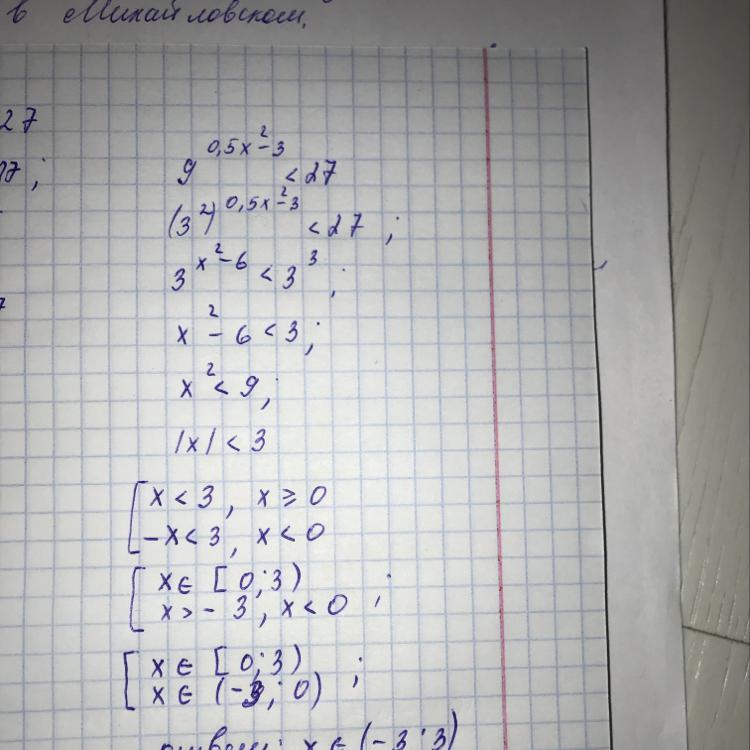 в Михайловском.
27
17;
9^{0,5x^2-3} < 27
(3^2)^{0,5x^2-3} < 27 ;
3^{x^2-6} < 3^3 ;
x^2 - 6 < 3;
x^2 < 9;
|x| < 3
[ x < 3, x ≥ 0
-x < 3, x < 0
[ x ∈ [0; 3)
x > -3, x < 0 ;
[ x ∈ [0; 3)
x ∈ (-3; 0) ;
ответ: x ∈ (-3; 3)